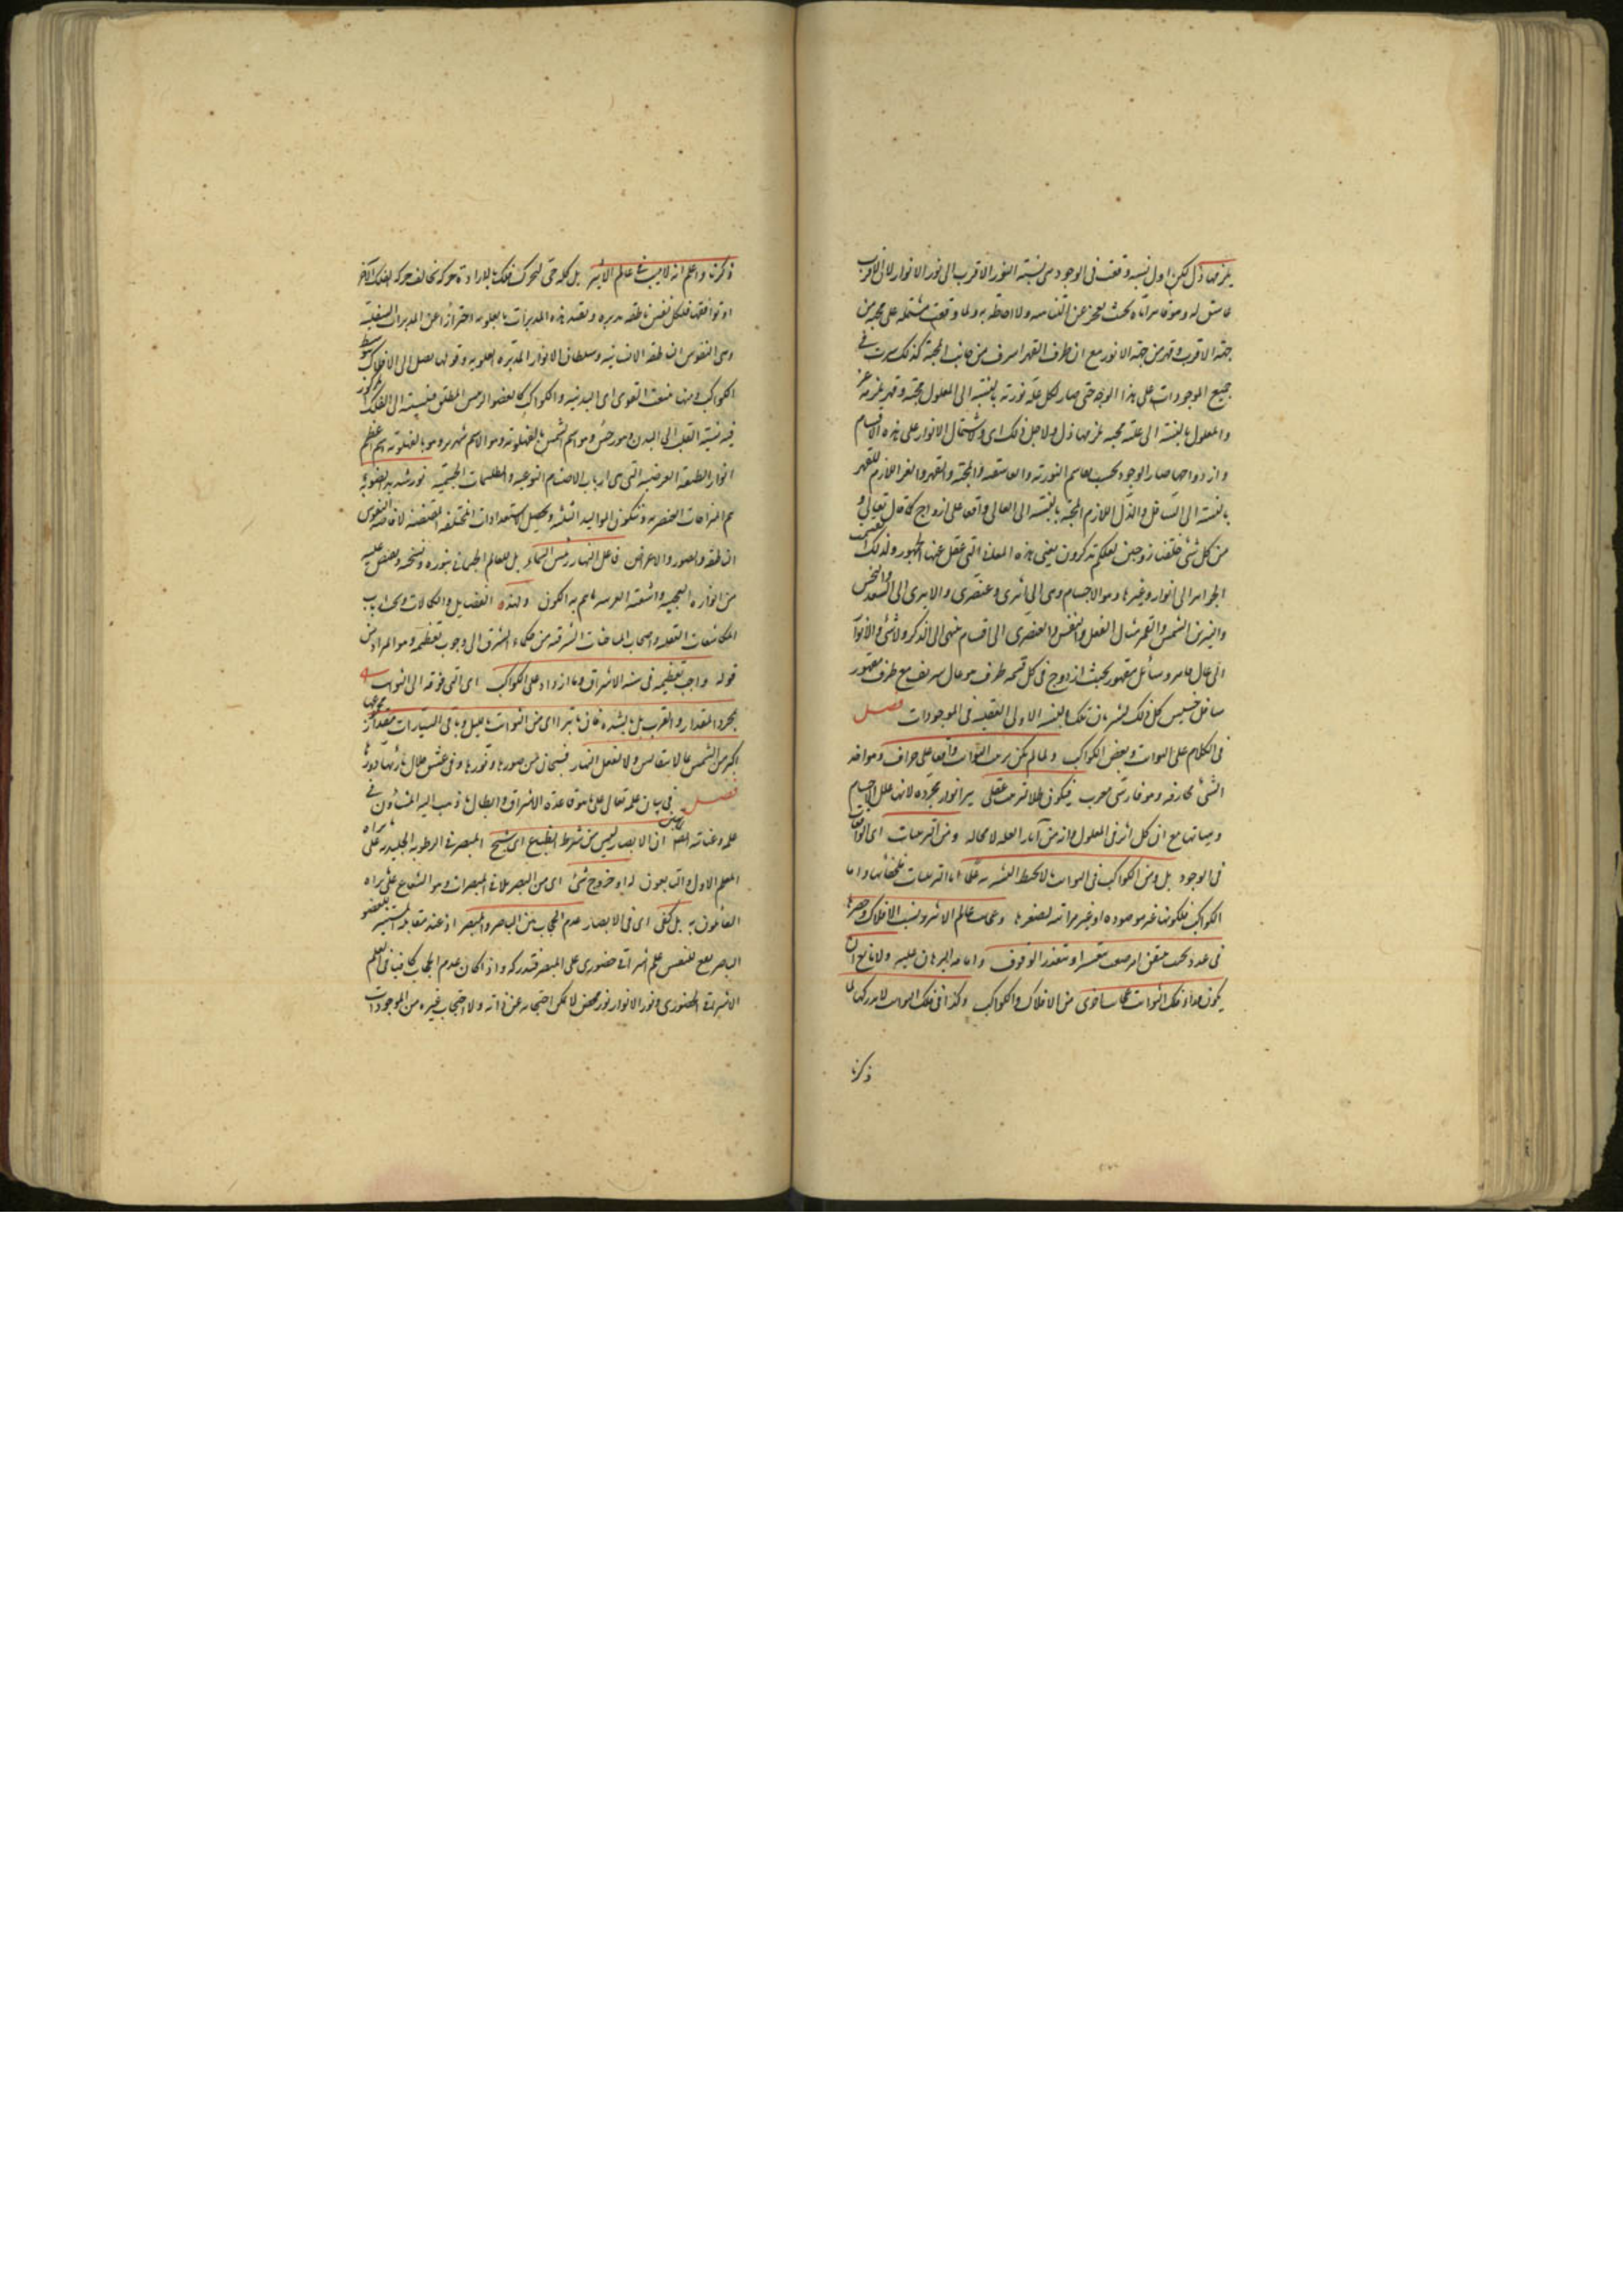 يلزمها ذل لكن اول نسبة وقعت فى الوجود هى نسبة النور الاقرب الى نور الانوار لان الاقرب
عاشق له وهو قاهر اياه بحيث يعجز عن اكتناهه والاحاطة به ولما وقعت مشتملة على محبة من
جهة الاقرب وقهر من جهة الانور مع ان طرف القهر اشرف من جانب المحبة كذلك سرت فى
جميع الموجودات على هذا الوجه حتى صار لكل علة نورية بالنسبة الى المعلول محبة وقهر يلزمه عز
وللمعلول بالنسبة الى علته محبة يلزمها ذل ولاجل ذلك اى ولاشتمال الانوار على هذه الاقسام
وازدواجها صار الوجود بحسب تقاسيم النورية والغاسقية والمحبة والقهر والعز اللازم للقهر
بالنسبة الى السافل والذل اللازم للمحبة بالنسبة الى العالى واقعا على ازواج كما قال تعالى و
من كل شئ خلقنا زوجين لعلكم تذكرون يعنى هذه المعانى التى غفل عنها الجمهور ولذلك انقسمت
الجواهر الى انوار وغيرها وهو الاجسام وهى الى اثيرى وعنصرى والاثيرى الى السعد والنحس
والنيرين الشمس والقمر مثال العقل والنفس والعنصرى الى اقسام تنتهى الى الذكر والانثى والانوار
الى عال قاهر وسافل مقهور بحيث ازدوج فى كل قسمة طرف هو عال شريف مع طرف مقهور
سافل خسيس كل ذلك لسريان تلك النسبة الاولى العقلية فى الموجودات فصل
فى الكلام على الثوابت وبعض الكواكب ولما لم يكن ترتيب الثوابت واقعا على جزاف وهو اخذ
الشئ مجازفة وهو فارسى معرب فيكون ظلا لترتيب عقلى بين انوار مجردة لانها علل الاجسام
وهيآتها مع ان كل اثر فى المعلول فانه من آثار العلة لا محالة ومن الترتيبات اى الواقعة
فى الوجود بل ومن الكواكب فى الثوابت ما لا يحيط البشر به علما اما الترتيبات فلخفائها واما
الكواكب فلكونها غير مرصودة او غير مرئية لصغرها وعجائب عالم الاثير ونسب الافلاك وحصرها
فى عدد بحيث يتيقن امر صعب متعسر او متعذر الوقوف واقامة البرهان عليه ولا مانع ان
يكون وراء فلك الثوابت عجايب اخرى من الافلاك والكواكب وكذا فى فلك الثوابت لا ندركها لما
ذكرنا
ذكرنا واعلم انه لا ميت فى عالم الاثير بل كله حى لتحرك افلاكه بالارادة حركة تخالف حركة الفلك الآخر
او توافقها فلكل نفس ناطقة مدبرة وتقييد هذه المدبرات بالعلوية احترازا عن المدبرات السفلية
وهى النفوس الناطقة الانسانية وسلطان الانوار المدبرة العلوية وقوتها تصل الى الافلاك بتوسط
الكواكب ومنها تنبعث القوى اى البدنية والكواكب كالعضو الرئيس المطلق فنسبته الى الفلك المركوز
فيه نسبة القلب الى البدن وهورخش وهو اسم الشمس بالفهلوية وهو الاسم شهرير وهو بالفهلوية اسم اعظم
انوار الطبقة العرضية التى هى ارباب الاصنام النوعية والطلسمات الجسمية نور شديد الضوء به
يتم المزاجات العنصرية وتتكون المواليد الثلثة ويحصل الاستعدادات المختلفة المقتضية لافاضة النفوس
الناطقة والصور والاعراض فاعل النهار رئيس السماء بل للعالم الجسمانى بنوره وتسخينه ويفيض عليه
من انواره العجيبة واشعته الغريبة ما يتم به الكون ولهذه الفضايل والكمالات ذهب ارباب
المكاشفات العقلية واصحاب المباحثات الشرقية من حكماء المشرق الى وجوب تعظيمه وهو المراد من
قوله واجب تعظيمه فى سنة الاشراق وما ازداد على الكواكب اى التى فوقه الى الثوابت
بمجرد المقدار والقرب بل بالشدة فان ما يترائى من الثوابت بالليل وباقى السيارات مقدار مجموعها
اكبر من الشمس بما لا يتقايس ولا يفعل النهار فسبحان من صورها ونورها وفى عشق جلال بارئها دورها
فصل فى بيان علمه تعالى على ما هو قاعدة الاشراق وابطال ما ذهب اليه المشاؤن فى
علمه وعنايته ان الابصار ليس من شرطه انطباع اى شبح المبصر فى الرطوبة الجليدية على ما يراه
المعلم الاول والتابعون له او خروج شئ اى من البصر يلاقى المبصرات وهو الشعاع على ما يراه
القائلون به بل كفى اى فى الابصار عدم الحجاب بين الباصر والمبصر اذ عند مقابلة المستنير للعضو
الباصر يقع للنفس علم اشراقى حضورى على المبصر فتدركه واذا كان عدم الحجاب كافيا فى العلم
الاشراقى الحضورى ونور الانوار نور محض لا يمكن احتجابه عن ذاته ولا احتجاب غيره من الموجودات